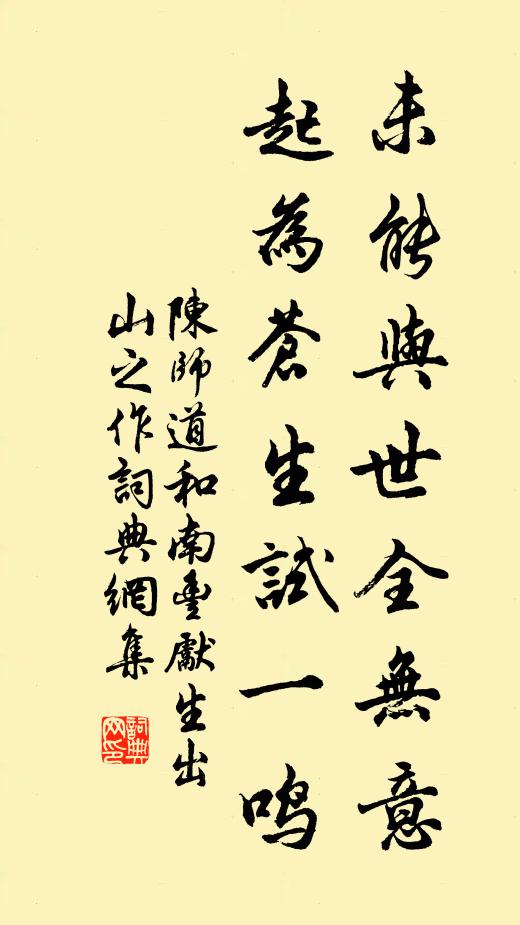 未能與世全無意
起為蒼生試一鳴
陳師道和南豐獻生出
山之作詞典網集
詞典網印